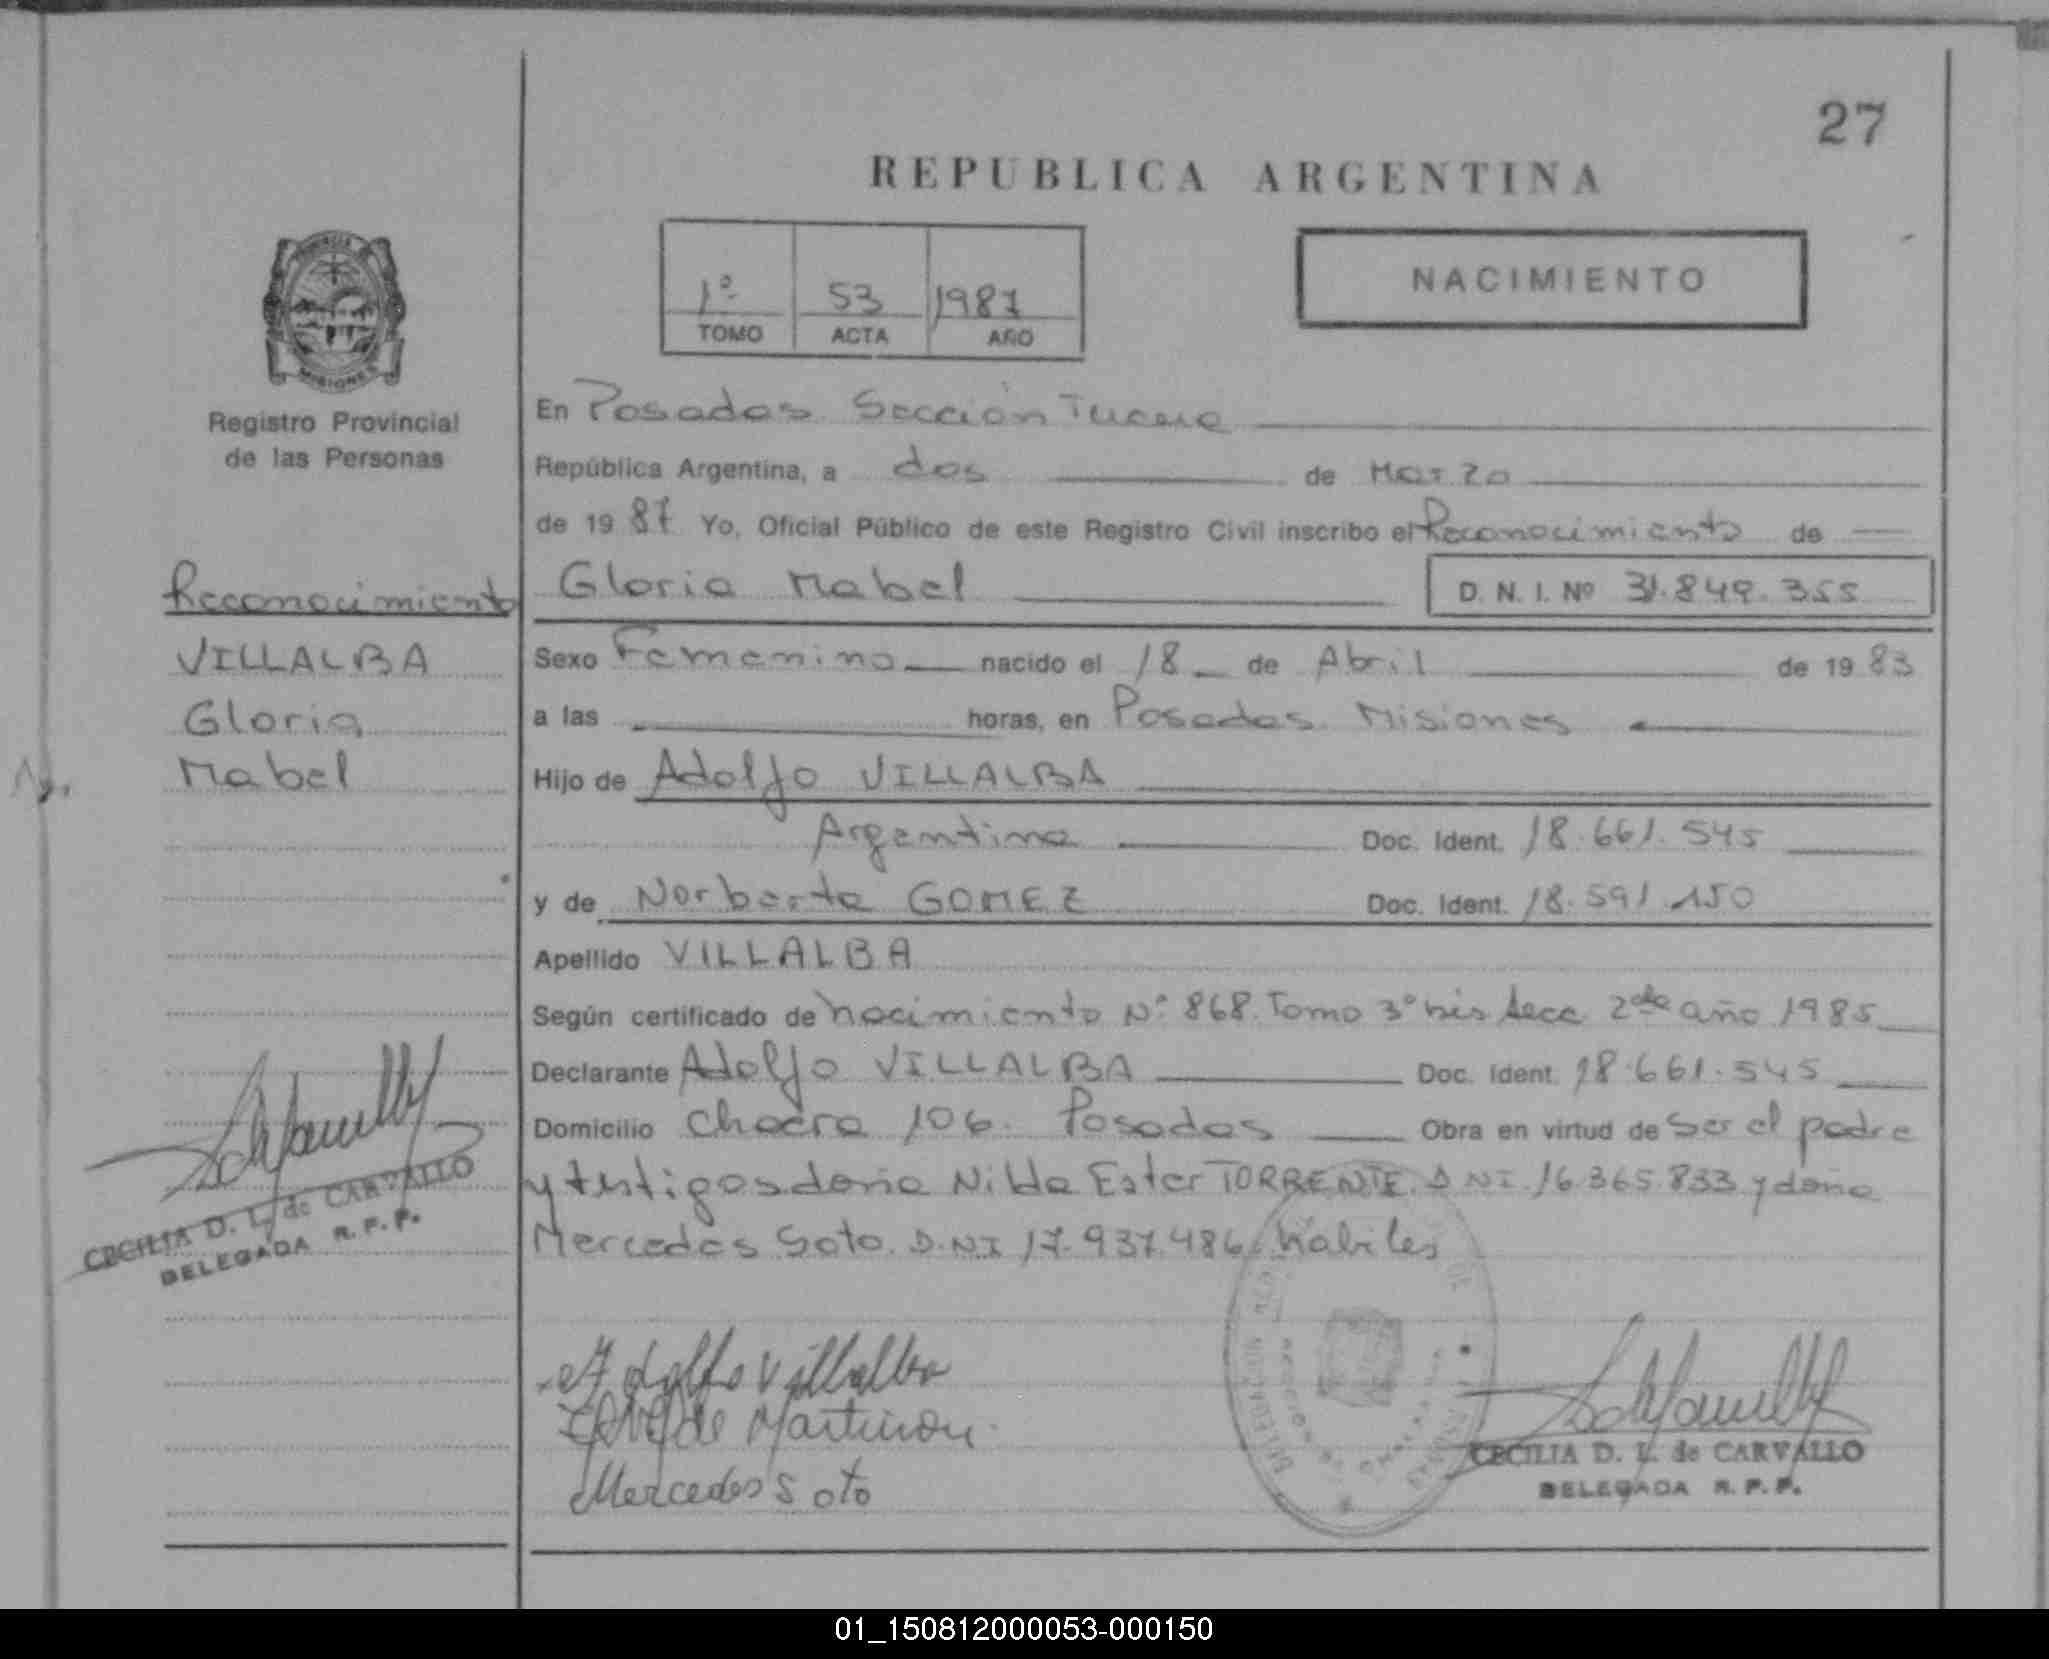 27
REPUBLICA ARGENTINA
1º 53 1987
TOMO ACTA AÑO
NACIMIENTO
MISIONES
Registro Provincial
de las Personas
Reconocimiento
VILLALBA
Gloria
Mabel
En Posadas Sección Tercera
República Argentina, a dos de Marzo
de 1987 Yo, Oficial Público de este Registro Civil inscribo el Reconocimiento de
Gloria Mabel D. N. I. Nº 31.849.355
Sexo Femenino nacido el 18 de Abril de 1983
a las horas, en Posadas Misiones
Hijo de Adolfo VILLALBA
Argentina Doc. Ident. 18.661.545
y de Norberta GOMEZ Doc. Ident. 18.591.150
Apellido VILLALBA
Según certificado de nacimiento Nº 868. Tomo 3º bis Secc 2da año 1985
Declarante Adolfo VILLALBA Doc. Ident. 18.661.545
Domicilio Chacra 106. Posadas Obra en virtud de ser el padre
y testigos doña Nilda Ester TORRENTE. D NI. 16.365.833 y doña
Mercedes Soto. D.NI 17.937.486 hábiles
CECILIA D. L. de CARVALLO
DELEGADA R. P. P.
Adolfo Villalba
de
Mercedes Soto
DELEGACION
CECILIA D. L. de CARVALLO
DELEGADA R. P. P.
01_150812000053-000150